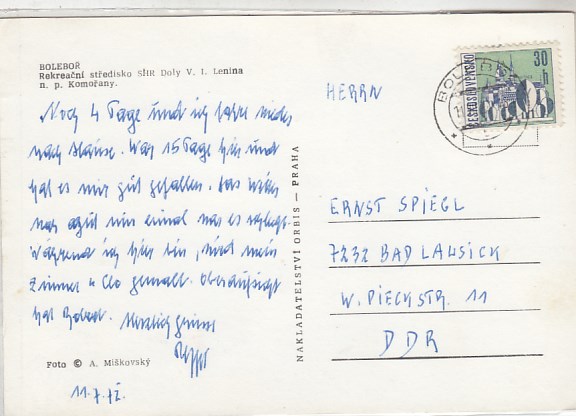 BOLEBOŘ
Rekreační středisko SHR Doly V. I. Lenina
n. p. Komořany.
Noch 4 Tage und ich fahre wieder
nach Hause. War 15 Tage hier und
hat es mir gut gefallen. Das
mir einmal was es
Während ich hier bin, wird mein
Zimmer u Clo gemalt. Oberaufsicht
hat Herzlich grüsst
11.7.
Foto © A. Miškovský
NAKLADATELSTVÍ ORBIS — PRAHA
ČESKOSLOVENSKO
30 h
HERRN
ERNST SPIEGL
7232 BAD LAUSICK
W. PIECKSTR. 11
DDR